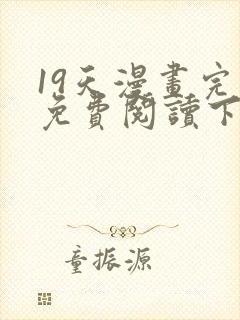 19天漫畫完
免費閱讀下
童振源